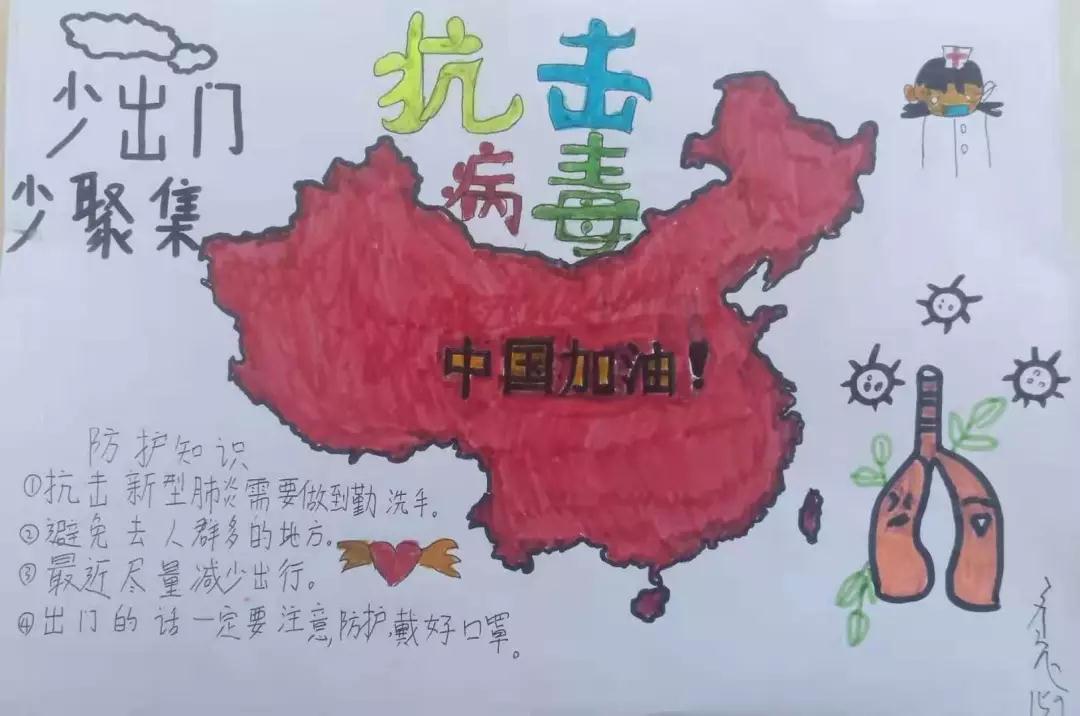 抗击
病毒
少出门
少聚集
中国加油!
防护知识
①抗击新型肺炎需要做到勤洗手。
②避免去人群多的地方。
③最近尽量减少出行。
④出门的话一定要注意,防护,戴好口罩。